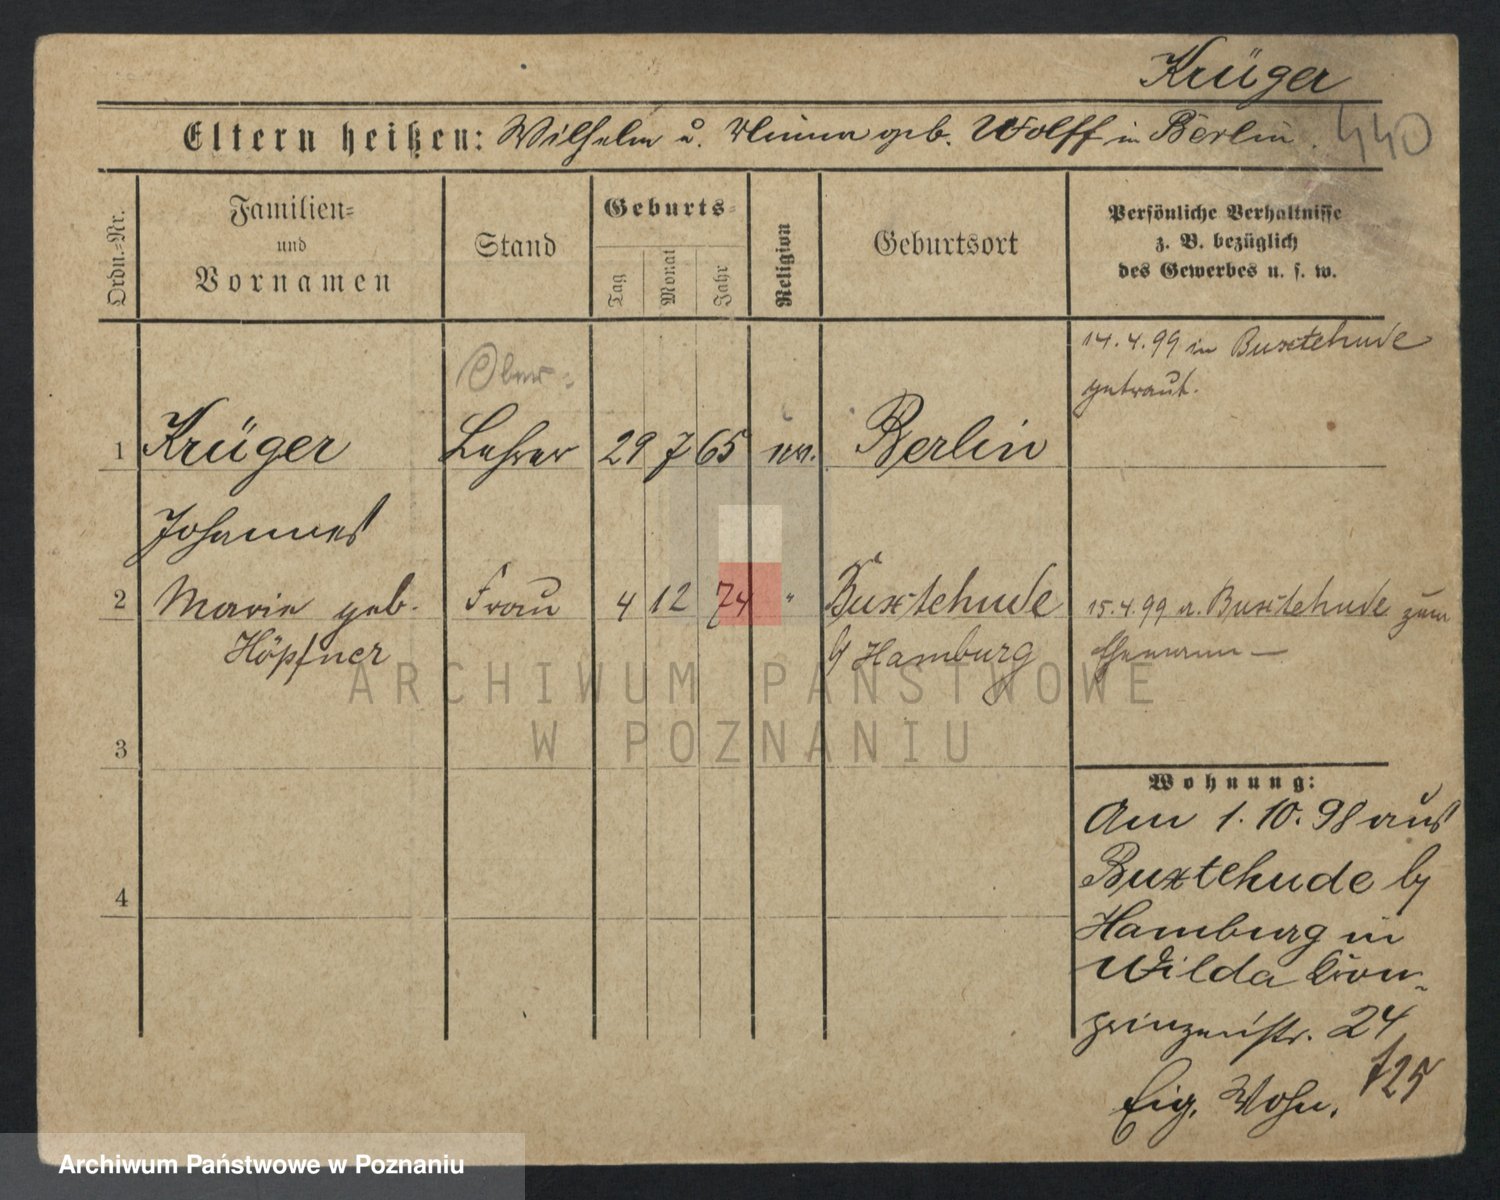 Krüger
Eltern heißen: Wilhelm u. Minna geb. Wolff in Berlin.
440
Ordn.=Nr.
Familien=
und
Vornamen
Stand
Geburts=
Tag
Monat
Jahr
Religion
Geburtsort
Persönliche Verhältnisse
z. B. bezüglich
des Gewerbes u. s. w.
14.4.99 in Buxtehude
getraut.
Ober-
1 Krüger Lehrer 29 7 65 ev. Berlin
Johannes
2 Marie geb. Frau 4 12 74 " Buxtehude 15.4.99 a. Buxtehude zum
Höpfner b/ Hamburg Ehemann —
ARCHIWUM PAŃSTWOWE
W POZNANIU
3
Wohnung:
Am 1.10.98 aus
Buxtehude b/
4
Hamburg in
Wilda Kron-
prinzenstr. 24
Eig. Wohn.
125
Archiwum Państwowe w Poznaniu